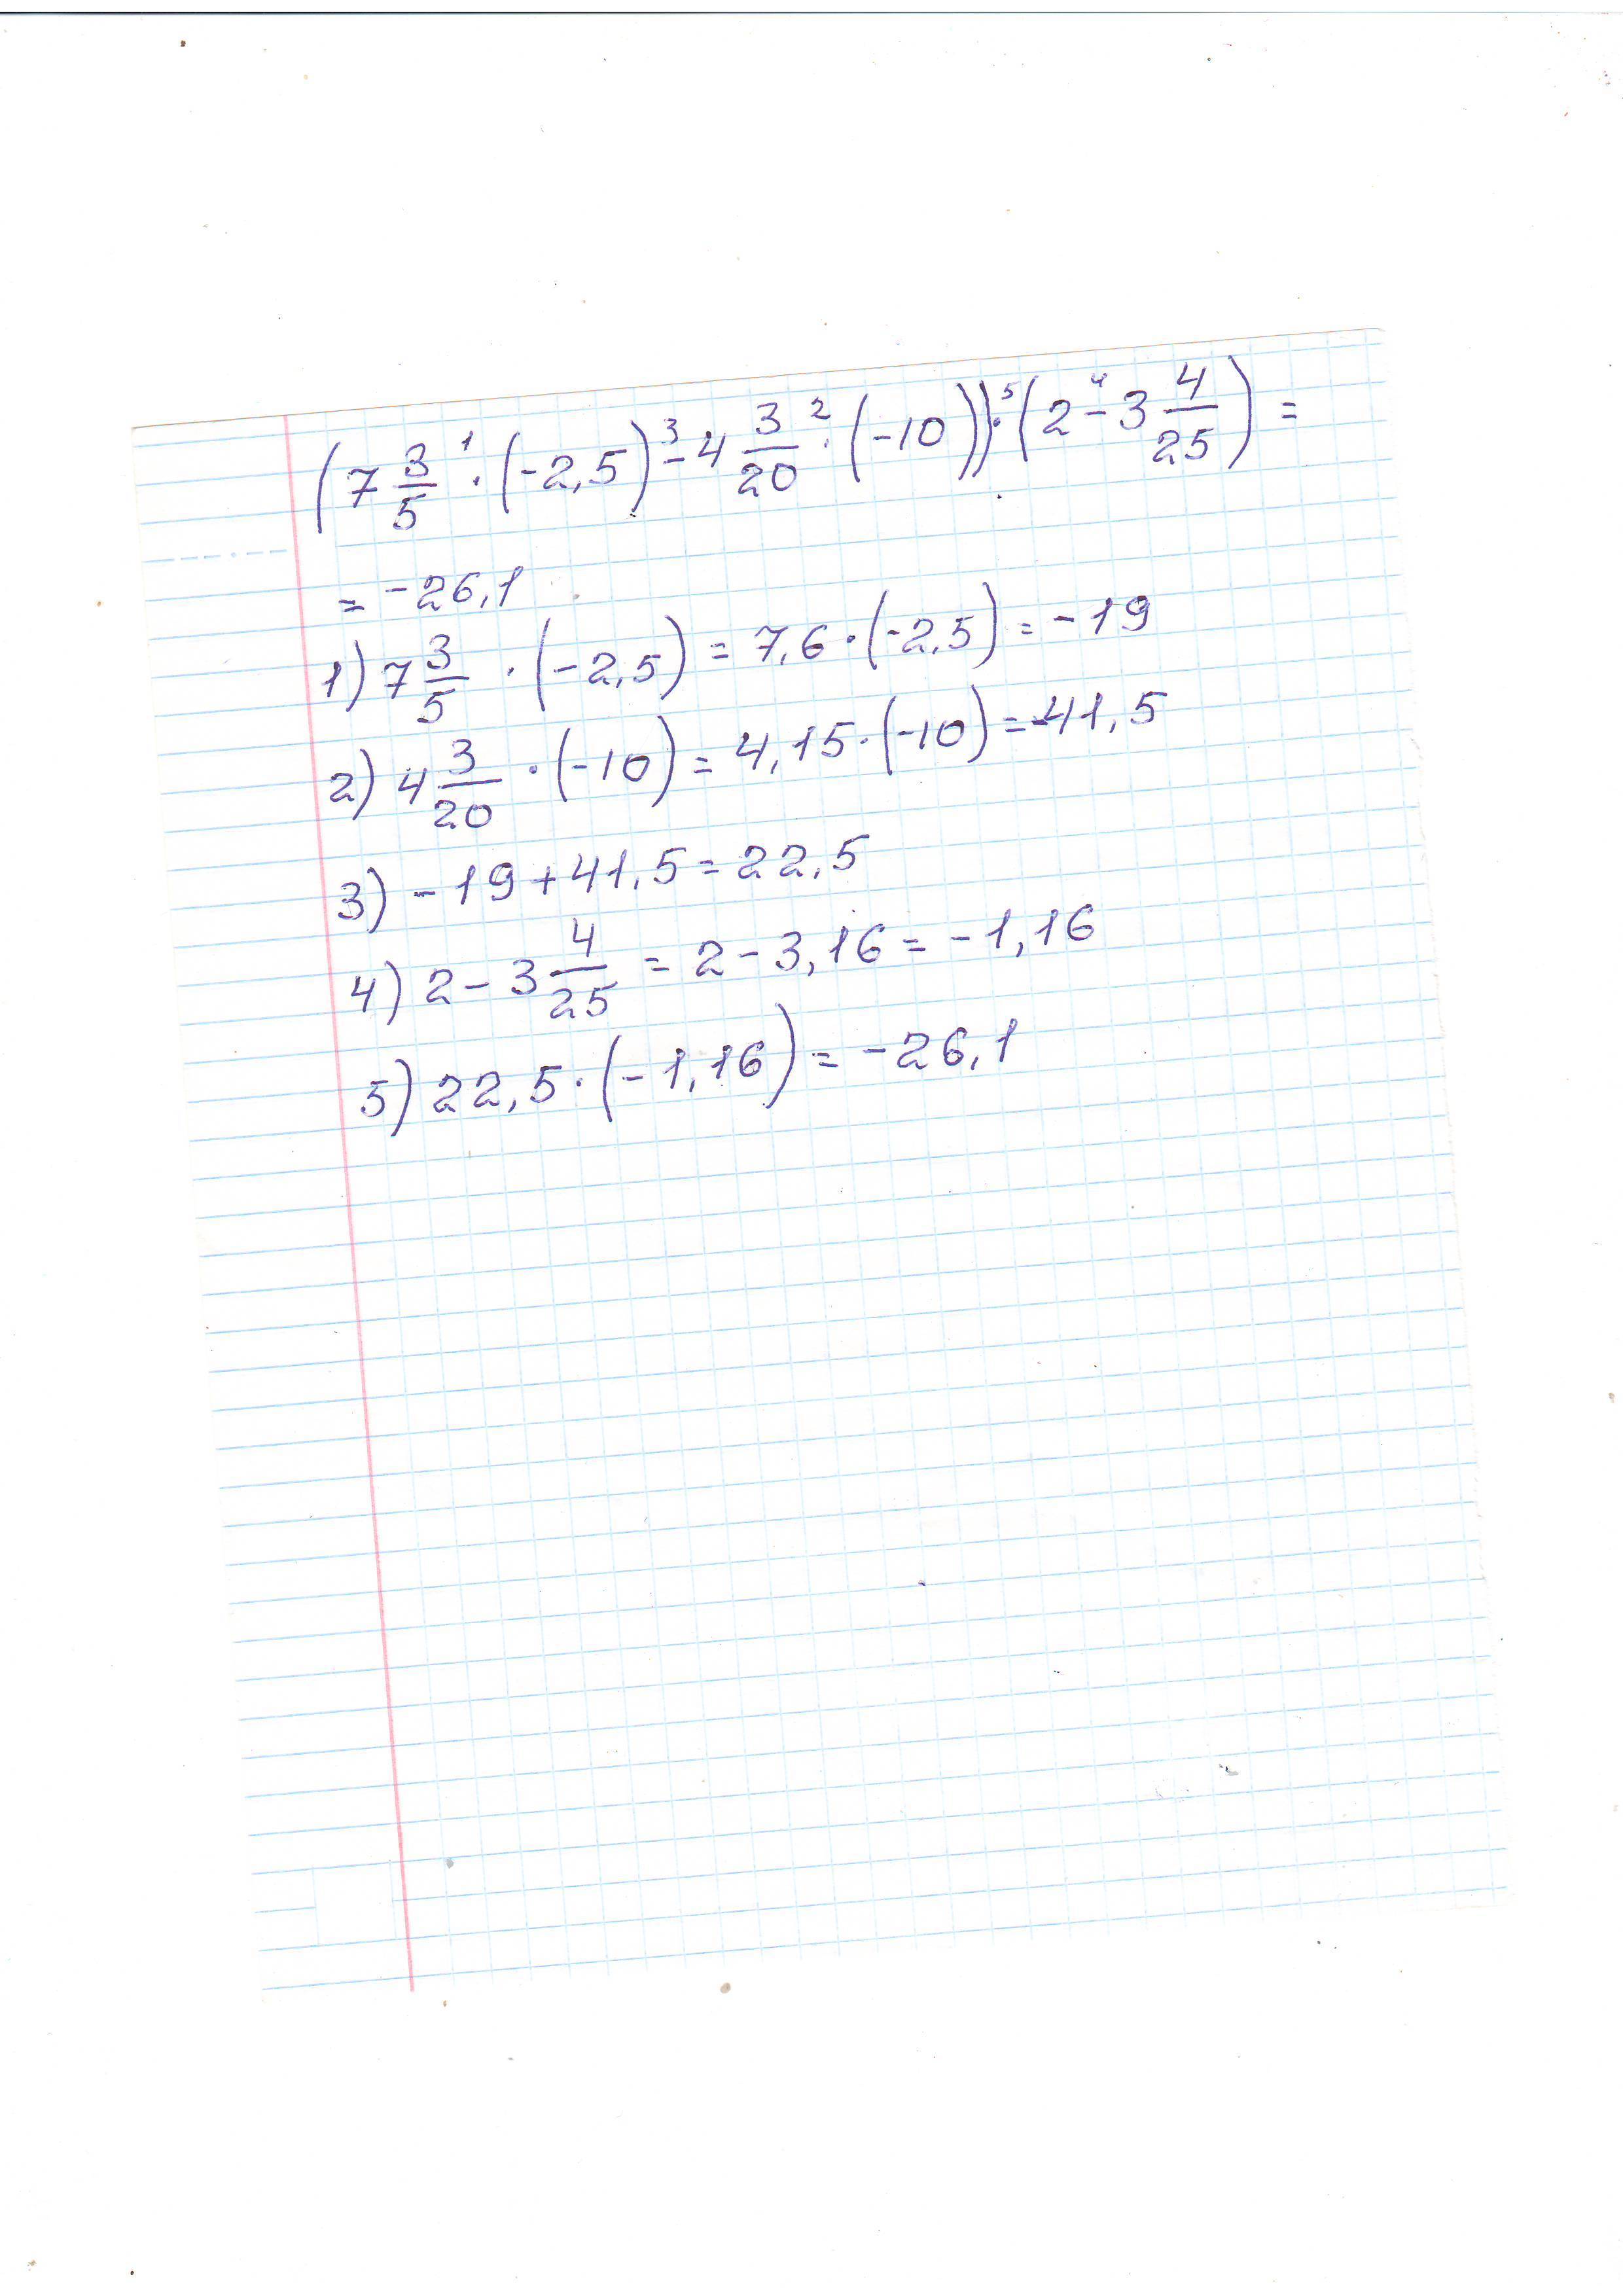 (7 3/5 ¹· (-2,5) ³- 4 3/20 ²· (-10)) ⁵· (2 ⁴- 3 4/25) =
= -26,1
1) 7 3/5 · (-2,5) = 7,6 · (-2,5) = -19
2) 4 3/20 · (-10) = 4,15 · (-10) = -41,5
3) -19 + 41,5 = 22,5
4) 2 - 3 4/25 = 2 - 3,16 = -1,16
5) 22,5 · (-1,16) = -26,1